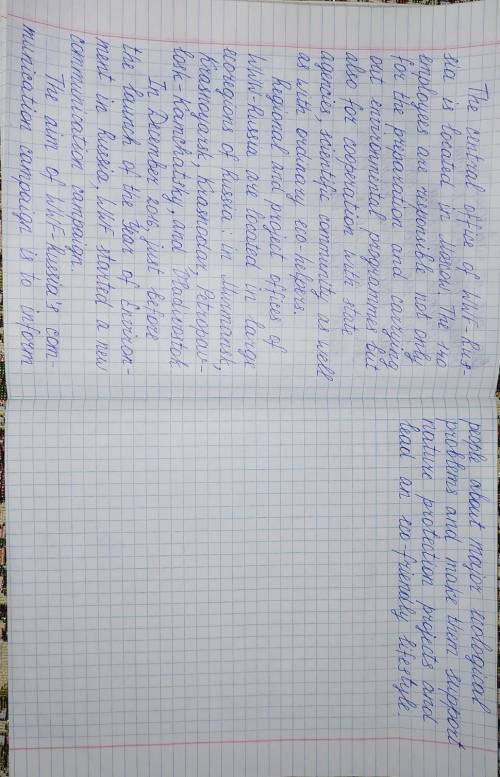 The central office of WWF-Rus-
sia is located in Moscow. The 140
employees are responsible not only
for the preparation and carrying
out environmental programmes but
also for cooperation with state
agencies, scientific community as well
as with ordinary eco-helpers.
Regional and project offices of
WWF-Russia are located in large
ecoregions of Russia: in Murmansk,
Krasnoyarsk, Krasnodar, Petropav-
lovsk-Kamchatsky, and Vladivostok.
In December 2016, just before
the launch of the Year of Environ-
ment in Russia, WWF started a new
communication campaign.
The aim of WWF-Russia's com-
munication campaign is to inform
people about major ecological
problems and make them support
nature protection projects and
lead an eco-friendly lifestyle.